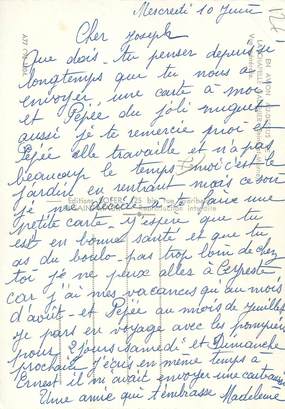 Mercredi 10 Juin
Cher Joseph
Que dois-tu penser depuis si
longtemps que tu nous a
envoyer, une carte à moi
et Pépée du joli muguet
aussi je te remercie moi et
Pépée elle travaille et n'a pas
beaucoup le temps moi c'est le
jardin en rentrant mais ce soir
je me décide à te faire une
petite carte j'espère que tu
est en bonne santé et que tu
as du boulo pas trop loin de chez
toi je ne peux allez à Cereste
car j'ai mes vacances qu'au mois
d'août et Pépée au mois de juillet
je pars en voyage avec les pompiers
pour 2 jours samedi et Dimanche
prochain j'écris en même temps à
Ernest il m'avait envoyer une carte aussi
Une amie qui t'embrasse Madeleine